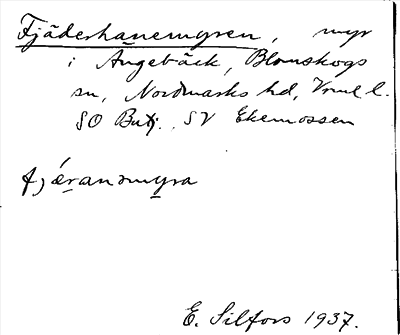 Fjäderhanemyren, myr
i Ängebäck, Blomskogs
sn, Nordmarks hd, Vrml l.
SO Butj., SV Ekemossen
fjæranəmyra
E. Silfors 1937.